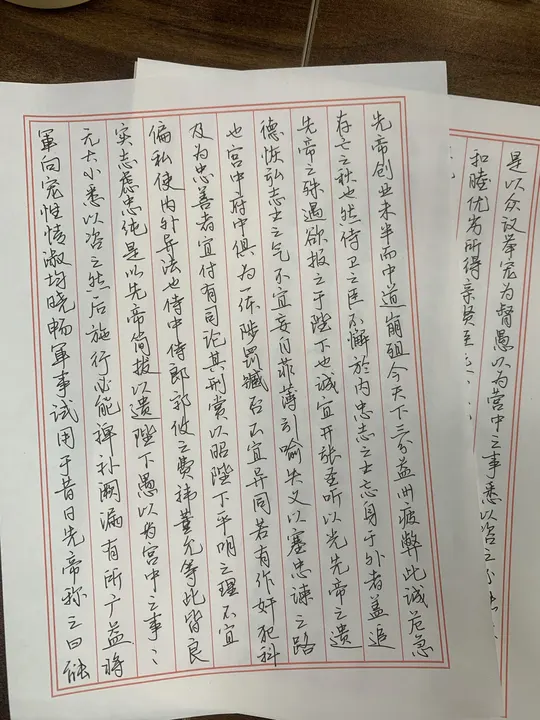 先帝创业未半而中道崩殂今天下三分益州疲弊此诚危急
存亡之秋也然侍卫之臣不懈於内忠志之士忘身于外者盖追
先帝之殊遇欲报之于陛下也诚宜开张圣听以光先帝之遗
德恢弘志士之气不宜妄自菲薄引喻失义以塞忠谏之路
也宫中府中俱为一体陟罚臧否不宜异同若有作奸犯科
及为忠善者宜付有司论其刑赏以昭陛下平明之理不宜
偏私使内外异法也侍中侍郎郭攸之费祎董允等此皆良
实志虑忠纯是以先帝简拔以遗陛下愚以为宫中之事:
无大小悉以咨之然后施行必能裨补阙漏有所广益将
軍向宠性情淑均晓畅軍事试用于昔日先帝称之曰能
是以众议举宠为督愚以为营中之事悉以咨之
和睦优劣所得亲贤